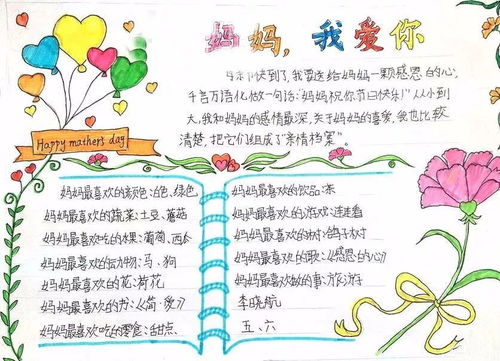 妈妈，我爱你
快到了，我要送给妈妈一颗感恩的心，
千言万语化做一句话："妈妈祝你节日快乐！"从小到
大，我和妈妈的感情最深，关于妈妈的喜爱，我也比较
清楚，把它们组成了"亲情档案"。
Happy mother's day
妈妈最喜欢的颜色：白色、绿色
妈妈最喜欢的蔬菜：土豆、蘑菇
妈妈最喜欢吃的水果：葡萄、西
妈妈最喜欢的动物：马、狗
妈妈最喜欢的花：荷花
妈妈最喜欢的书：《简·爱》
妈妈最喜欢吃的零食：甜点
妈妈最喜欢的饮品：茶
妈妈最喜欢的游戏：连连看
妈妈最喜欢的树：鸽子树
妈妈最喜欢的歌：《感恩的心》
妈妈最喜欢做的事：旅游
李晓航
五、六